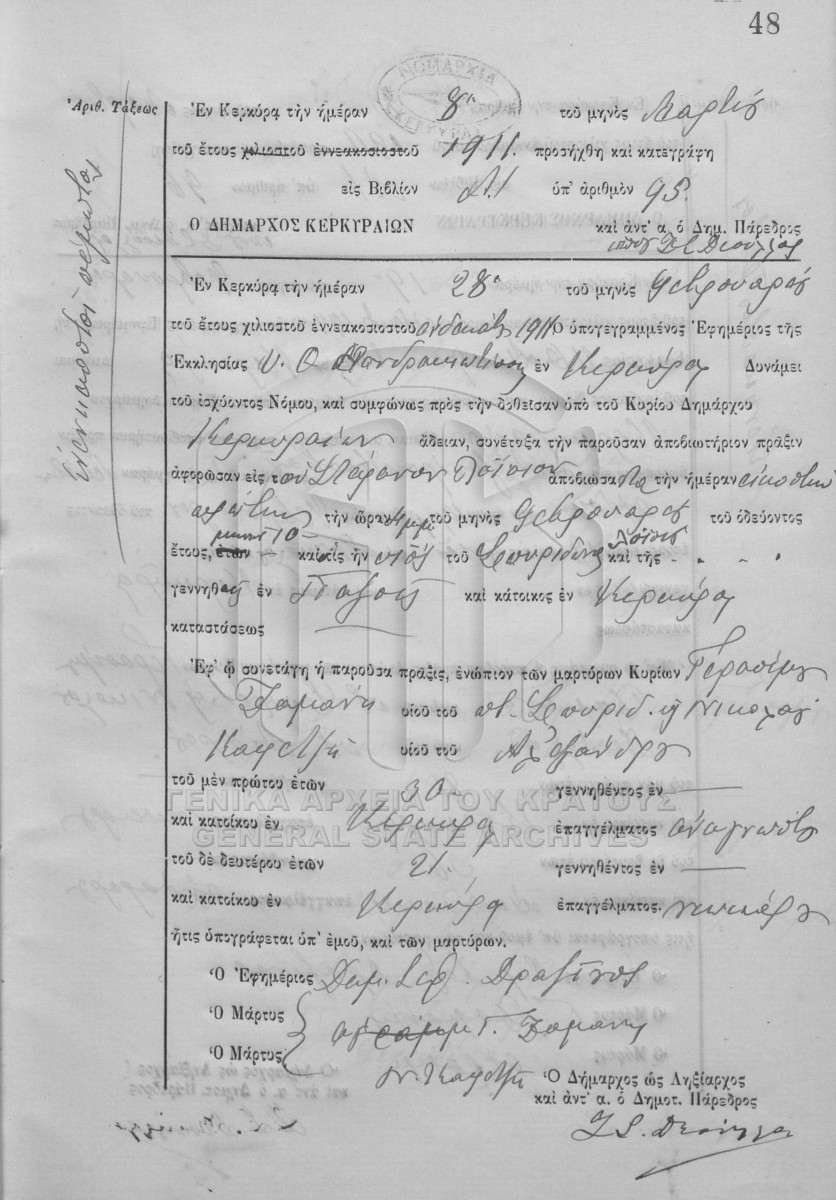 48
ΝΟΜΑΡΧΙΑ
Ἀριθ. Τάξεως
Ἐν Κερκύρᾳ τὴν ἡμέραν 8η τοῦ μηνὸς Μαρτίου
τοῦ ἔτους χιλιοστοῦ ἐννεακοσιοστοῦ 1911. προσήχθη καὶ κατεγράφη
εἰς Βιβλίον ὑπ' ἀριθμὸν 95.
Ο ΔΗΜΑΡΧΟΣ ΚΕΡΚΥΡΑΙΩΝ καὶ ἀντ' α. ὁ Δημ. Πάρεδρος
Ἐν Κερκύρᾳ τὴν ἡμέραν 28η τοῦ μηνὸς Φεβρουαρίου
τοῦ ἔτους χιλιοστοῦ ἐννεακοσιοστοῦ ἑνδεκάτου 1911 Ὁ ὑπογεγραμμένος Ἐφημέριος τῆς
Ἐκκλησίας Υ. Θ. ἐν Κερκύρᾳ Δυνάμει
τοῦ ἰσχύοντος Νόμου, καὶ συμφώνως πρὸς τὴν δοθεῖσαν ὑπὸ τοῦ Κυρίου Δημάρχου
Κερκυραίων ἄδειαν, συνέταξα τὴν παροῦσαν ἀποβιωτήριον πρᾶξιν
ἀφορῶσαν εἰς τὸν Στέφανον ἀποβιώσαντα τὴν ἡμέραν εἰκοστὴν
πρώτην τὴν ὥραν 4 μμ τοῦ μηνὸς Φεβρουαρίου τοῦ ὁδεύοντος
ἔτους, ἐτῶν μηνῶν 10 – καὶ τίς ἦν υἱὸς τοῦ Σπυρίδωνος καὶ τῆς – „ „ „
γεννηθεὶς ἐν Παξοῖς καὶ κάτοικος ἐν Κερκύρᾳ
καταστάσεως —
Ἐφ' ᾧ συνετάγη ἡ παροῦσα πρᾶξις, ἐνώπιον τῶν μαρτύρων Κυρίων Γερασίμου
Ζαμάνη υἱοῦ τοῦ Σπυρίδ. ἢ Νικολάου
Καφετζῆ υἱοῦ τοῦ Ἀλεξάνδρου
τοῦ μὲν πρώτου ἐτῶν 30 – γεννηθέντος ἐν —
ΓΕΝΙΚΑ ΑΡΧΕΙΑ ΤΟΥ ΚΡΑΤΟΥΣ
καὶ κατοίκου ἐν Κερκύρᾳ ἐπαγγέλματος ἀναγνώστου
GENERAL STATE ARCHIVES
τοῦ δὲ δευτέρου ἐτῶν 21. γεννηθέντος ἐν —
καὶ κατοίκου ἐν Κερκύρᾳ ἐπαγγέλματος.
ἥτις ὑπογράφεται ὑπ' ἐμοῦ, καὶ τῶν μαρτύρων.
Ὁ Ἐφημέριος
Ὁ Μάρτυς Γ. Ζαμάνης
Ὁ Μάρτυς
Ν. Καφετζῆς Ὁ Δήμαρχος ὡς Ληξίαρχος
καὶ ἀντ' α. ὁ Δημοτ. Πάρεδρος